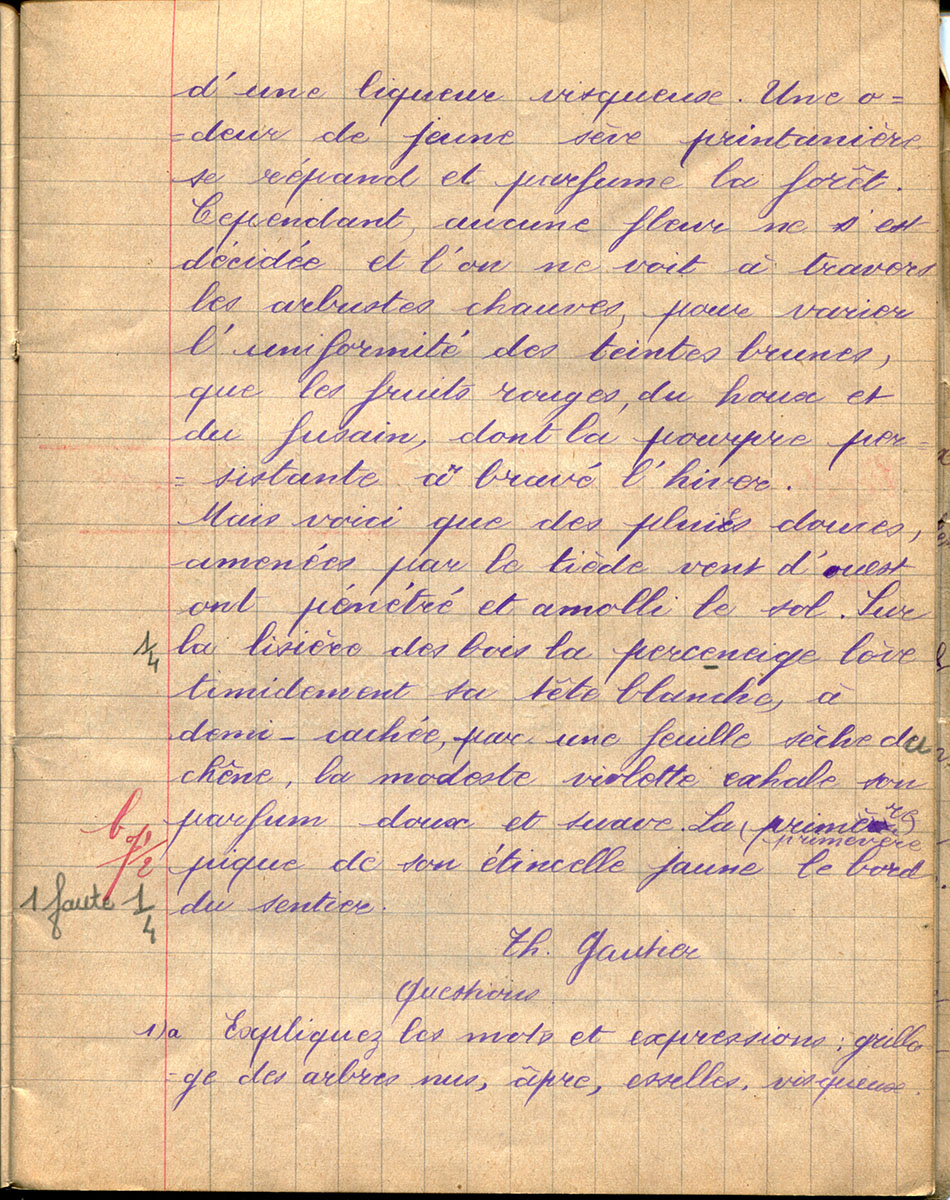 d'une liqueur visqueuse. Une o=
=deur de jeune sève printanière
se répand et parfume la forêt.
Cependant, aucune fleur ne s'est
décidée et l'on ne voit à travers
les arbustes chauves, pour varier
l'uniformité des teintes brunes,
que les fruits rouges, du houx et
du fusain, dont la pourpre per=
=sistante a bravé l'hiver.
Mais voici que des pluies douces,
amenées par le tiède vent d'ouest
ont pénétré et amolli le sol. Sur
1/4 la lisière des bois la perceneige lève
timidement sa tête blanche, à
demi-cachée, par une feuille sèche de
chêne, la modeste violette exhale son
parfum doux et suave. La (primè re
primevère
pique de son étincelle jaune le bord
1 faute 1/4 du sentier.
Th. Gautier
Questions
1) a Expliquez les mots et expressions : grilla
=ge des arbres nus, âpre, esselles, visqueuse.